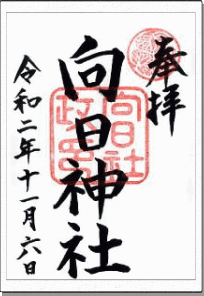 奉拝
向日神社
令和二年十一月六日
向日社